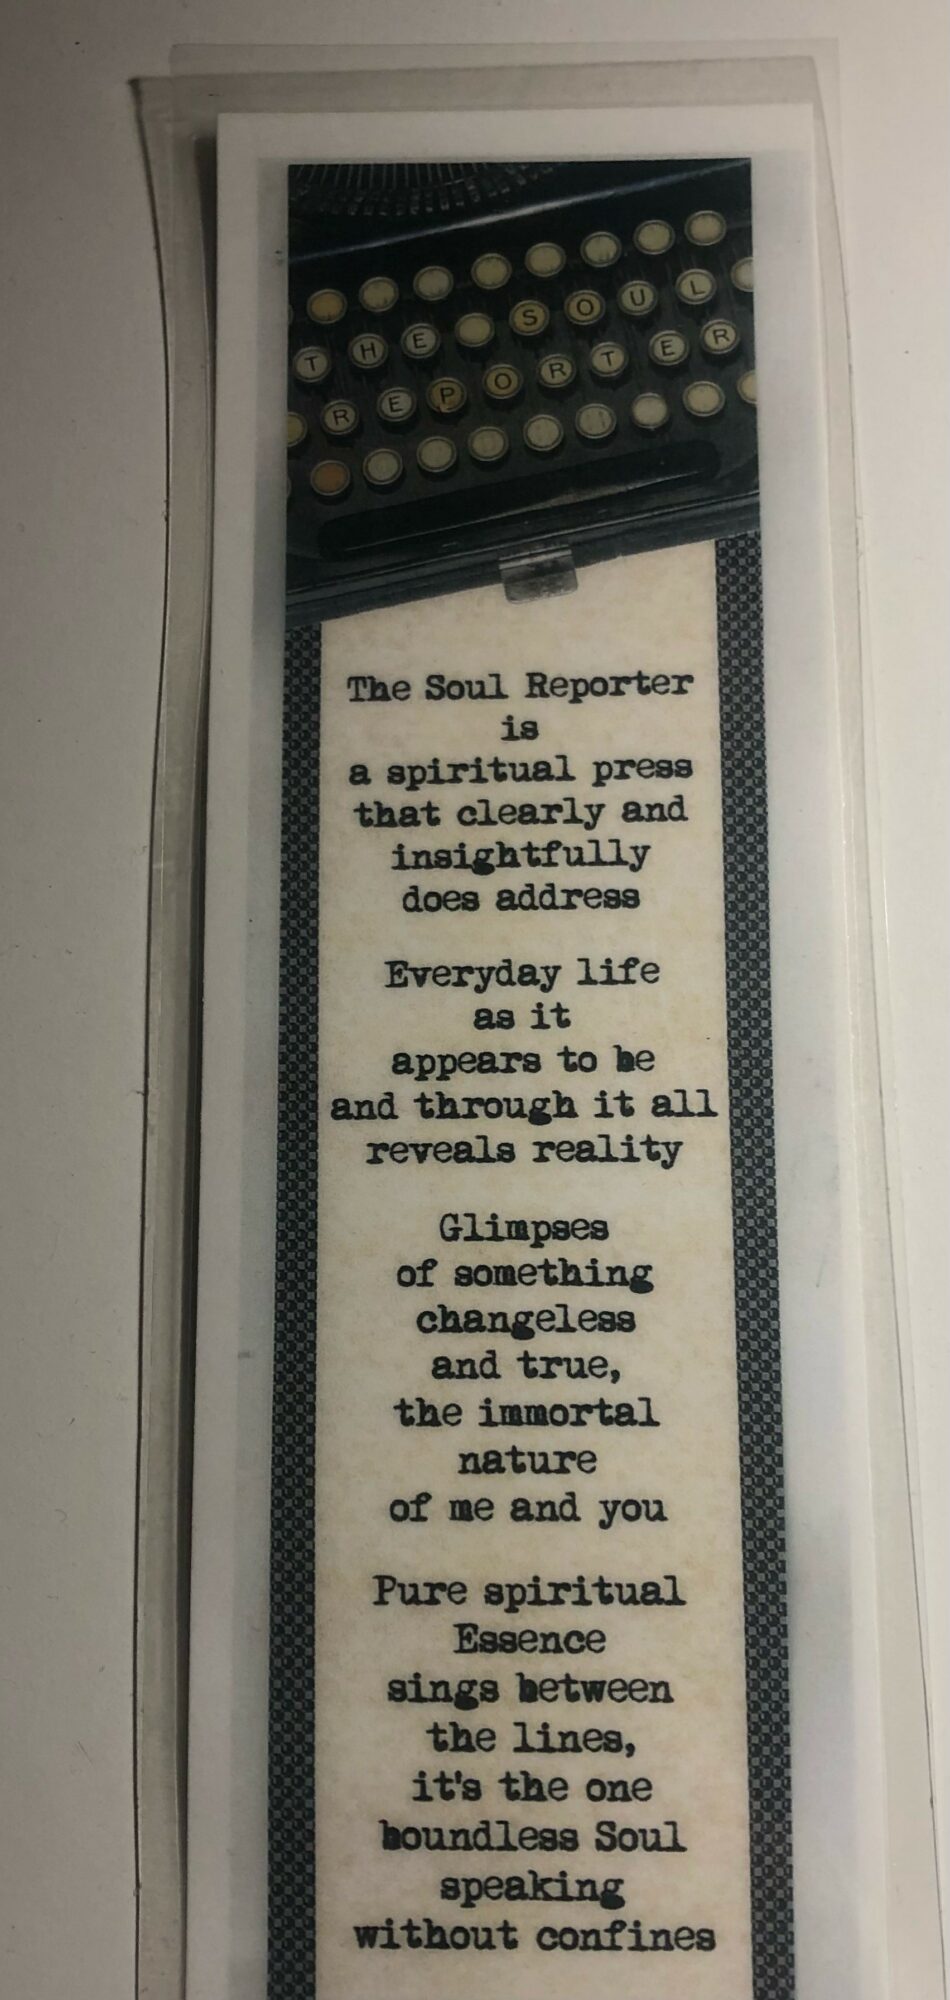 THE SOUL
REPORTER
The Soul Reporter
is
a spiritual press
that clearly and
insightfully
does address
Everyday life
as it
appears to be
and through it all
reveals reality
Glimpses
of something
changeless
and true,
the immortal
nature
of me and you
Pure spiritual
Essence
sings between
the lines,
it's the one
boundless Soul
speaking
without confines